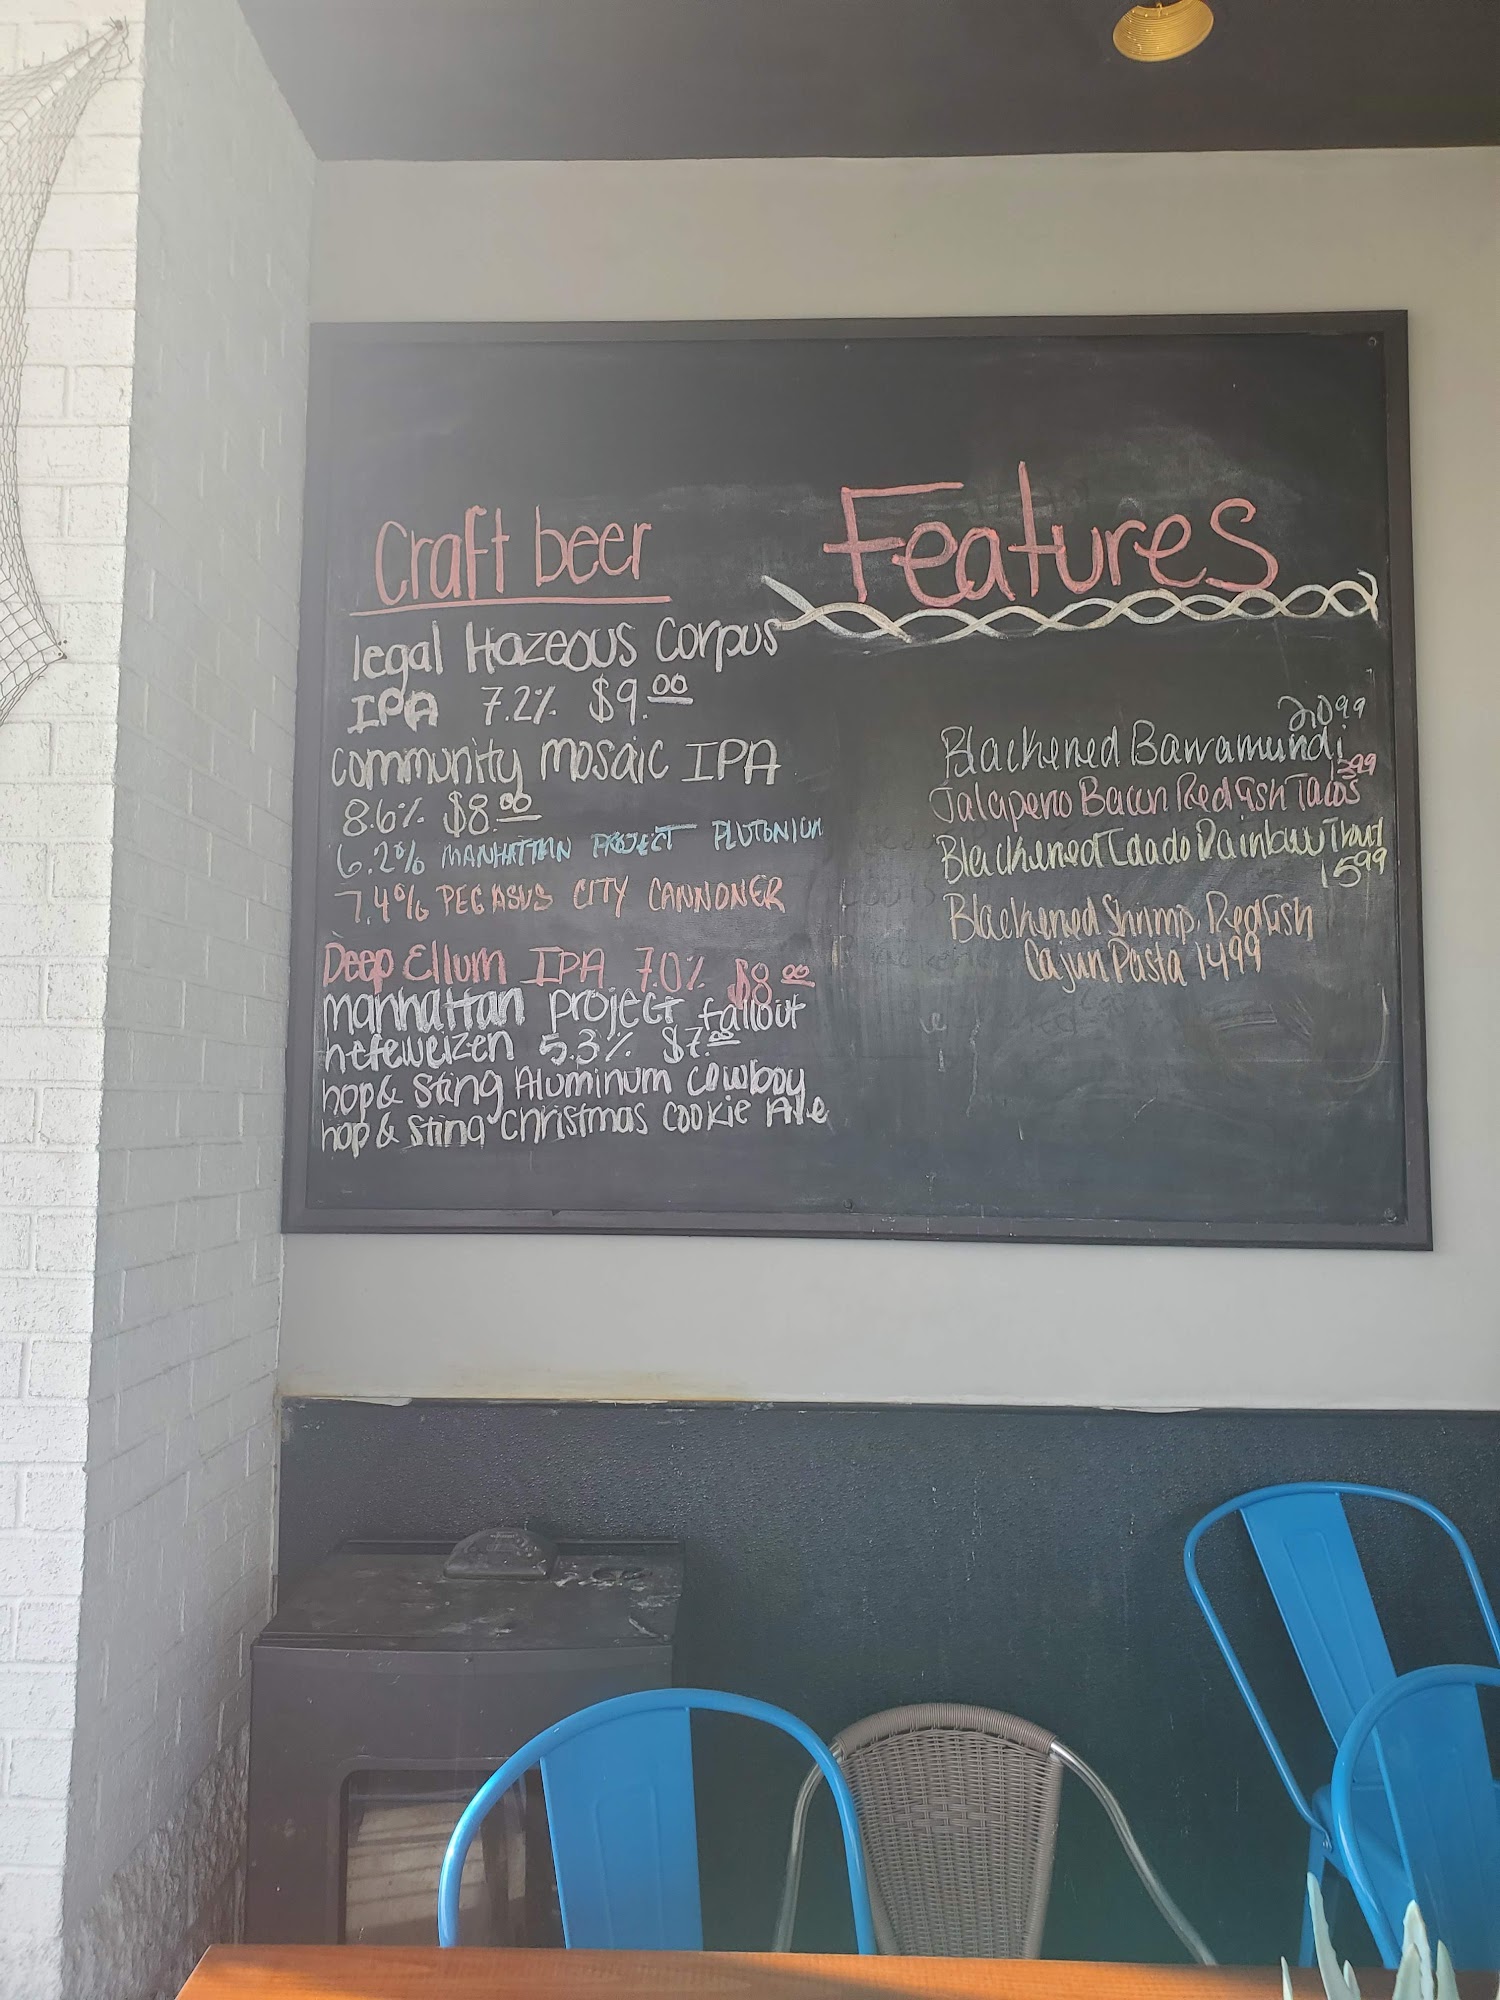 Craft beer
legal Hazeous Corpus
IPA 7.2% $9.00
Community mosaic IPA
8.6% $8.00
6.2% MANHATTAN PROJECT PLUTONIUM
7.4% PEGASUS CITY CANNONER
Deep Ellum IPA 7.0% $8.00
manhattan project fallout
hefeweizen 5.3% $7.00
hop & Sting Aluminum Cowboy
hop & Sting Christmas Cookie Ale
Features
20 99
Blackened Barramundi
Jalapeno Bacon Redfish Tacos
Blackened Rainbow Trout
15 99
Blackened Shrimp Redfish
Cajun Pasta 14 99